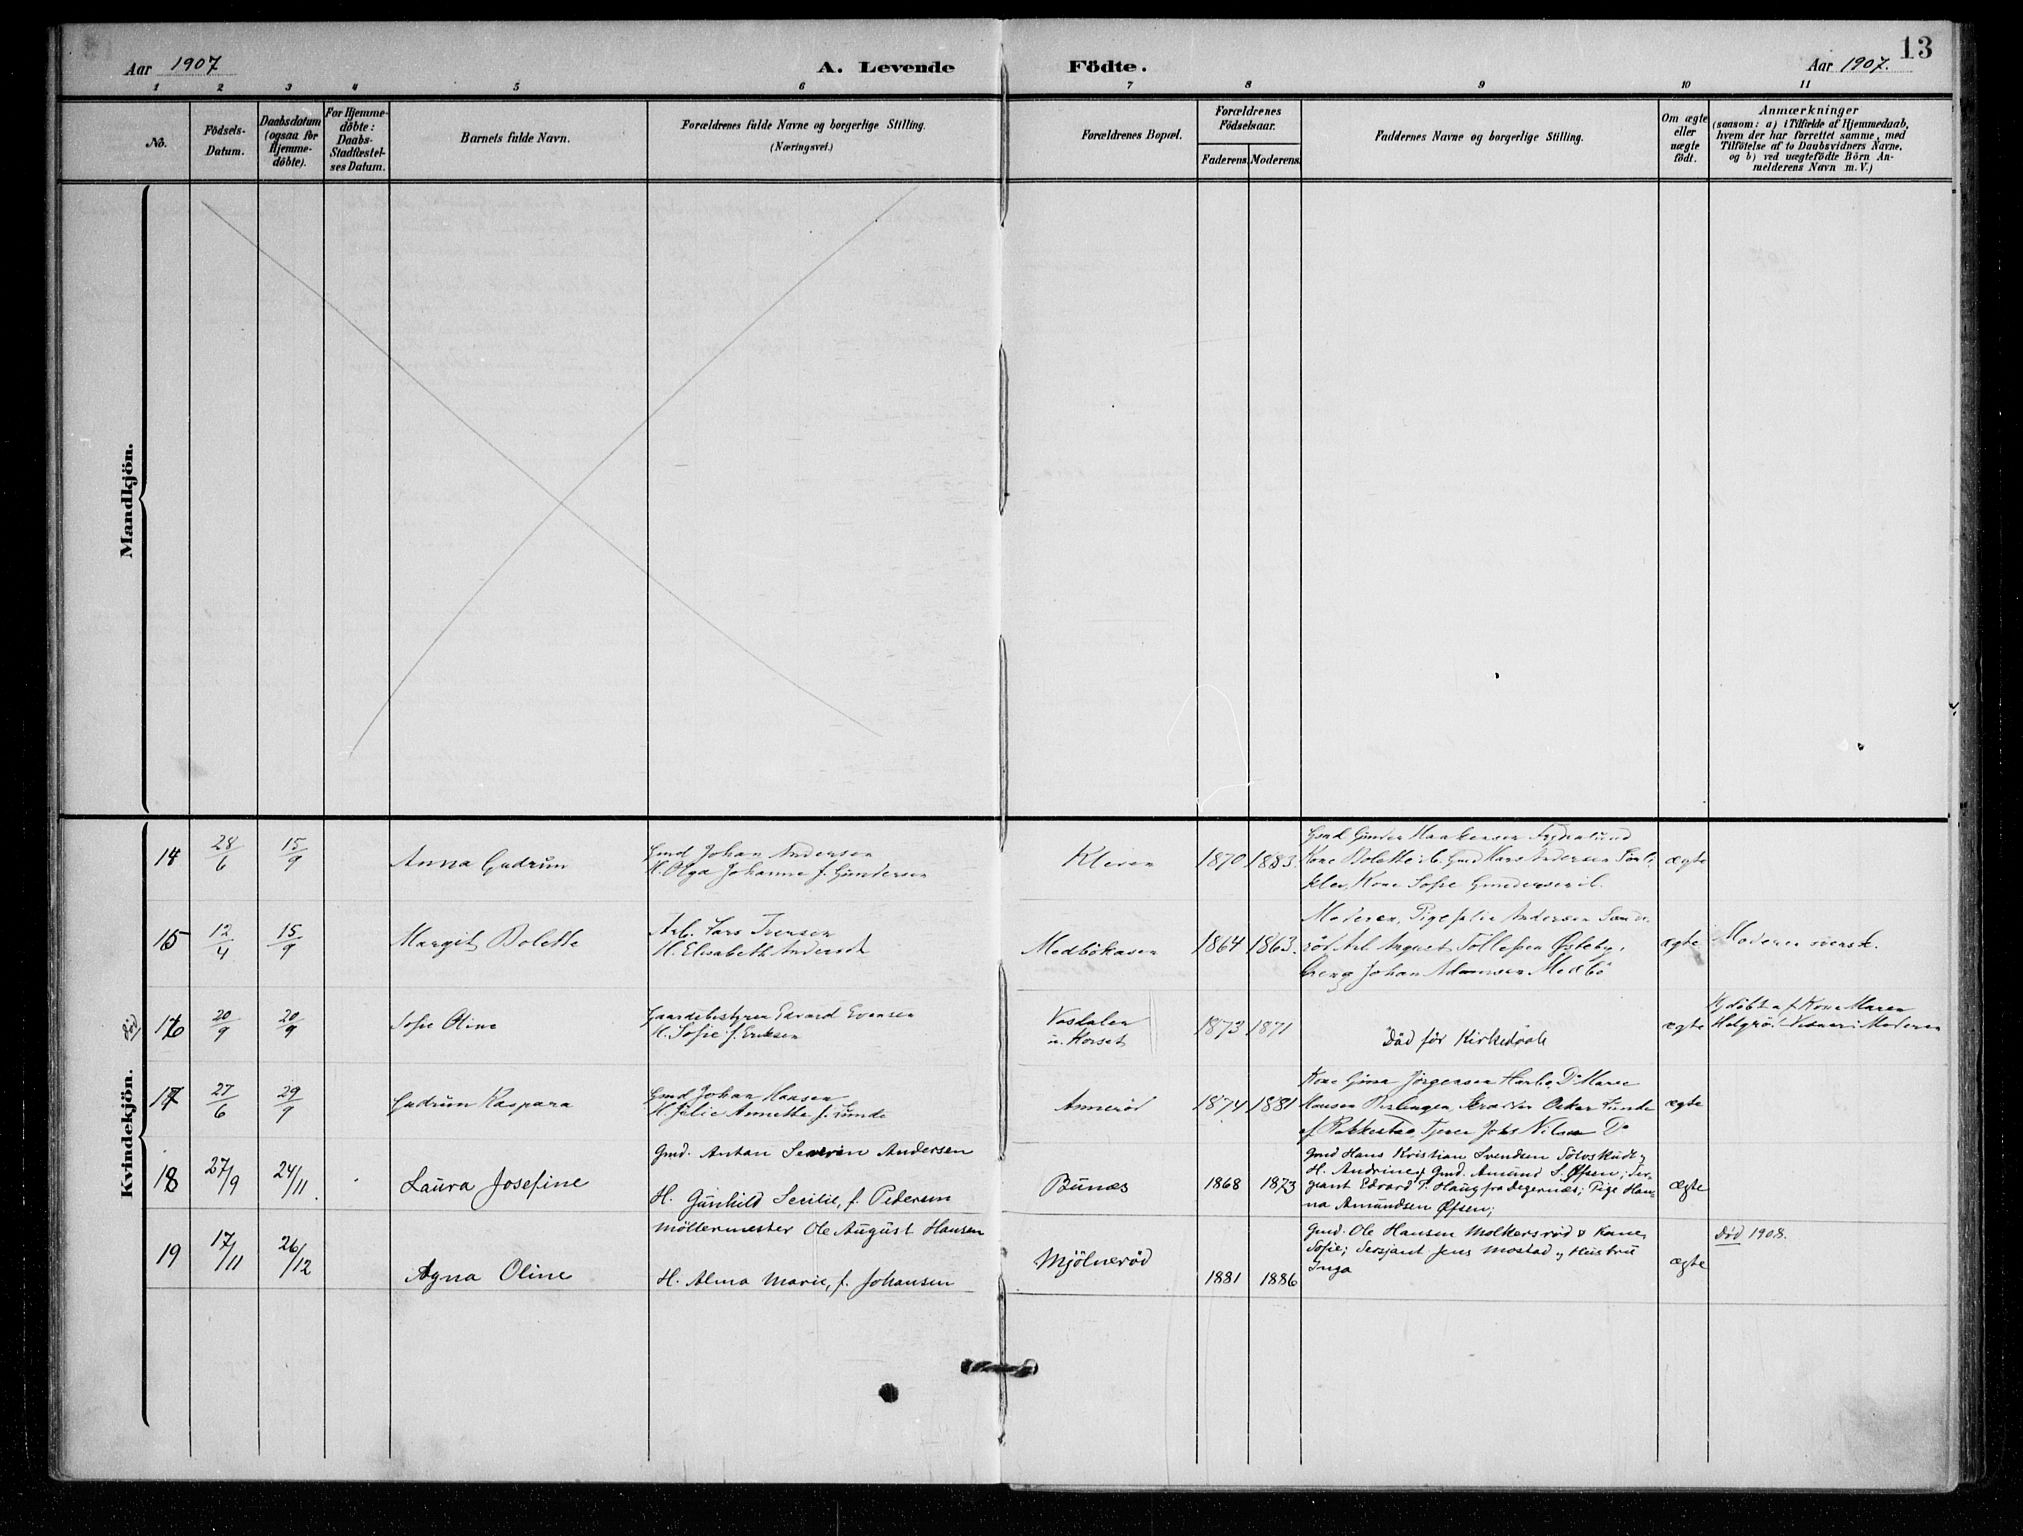 13
Aar 1907
A. Levende Födte.
Aar 1907.
1 2 3 4 5 6 7 8 9 10 11
No.
Födsels-Datum.
Daabsdatum (ogsaa for Hjemme-döbte).
For Hjemme-döbte: Daabs-Stadfæstel-ses Datum.
Barnets fulde Navn.
Forældrenes fulde Navne og borgerlige Stilling.
(Næringsvei.)
Forældrenes Bopæl.
Forældrenes Födselsaar.
Faderens. Moderens.
Faddernes Navne og borgerlige Stilling.
Om ægte eller uægte födt.
Anmærkninger
(saasom: a) i Tilfælde af Hjemmedaab,
hvem der har forrettet samme, med
Tilföielse af to Daabsvidners Navne,
og b) ved uægtefödte Börn An-
melderens Navn m. V.)
Mandkjön.
Kvindekjön.
14 28/6 15/9 Anna Gudrun
Gmd Johan Andersen
H. Olga Johanne f. Gundersen
Kleven 1870 1883.
Kone Bolette ib. Gmd Hans Andersen
Kone Sofie Gundersen ib.
ægte
15 12/4 15/9 Margit Bolette
Arb. Lars Iversen
H. Elisabeth Andersdt
Medbökasen 1864 1863.
Moderen, Pige Julie Andersen
Arb. August Tollefsen Østeby,
Dreng Johan Adamsen Medbö
ægte Moderen svensk.
död 16 20/9 20/9 Sofie Oline
Gaardsbestyrer Edvard Evensen
H. Sofie f. Eriksen
Vasdalen
u. Horset
1873 1871
Död för Kirkedaab
ægte
Hjdöbt af Kone Maren
Moderen
17 27/6 29/9 Gudrun Kaspara
Gmd Johan Hansen
H. Julie Annette f. Lunde
Annerød 1874 1881
Kone Gina Jörgensen Do Marie
Hansen Skrædder Oskar Lunde
af Rakkestad, Tjener Johs Nilsen Do
ægte
18 27/9 24/11. Laura Josefine
Gmd. Anton Severin Andersen
H. Gunhild Secilie, f. Pedersen
Bunæs 1868 1873
Gmd Hans Kristian Svendsen
H. Andrine; Gmd. Amund S. Øfsen; Ser-
geant Edvard T. Haug fra Degernæs; Pige Han-
na Amundsen Øfsen;
ægte
19 17/11 26/12 Agna Oline
Möllermester Ole August Hansen
H. Alma Marie, f. Johansen
Mjölneröd 1881 1886
Gmd. Ole Hansen Molkersröd & Kone
Sofie; Sersjant Jens Mostad og Hustru
Inga
ægte Död 1908.